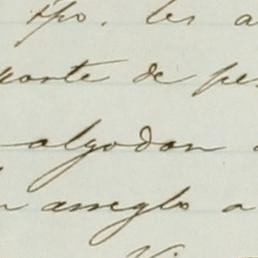 tpo. les a
porte de pe
algodon
arreglo a